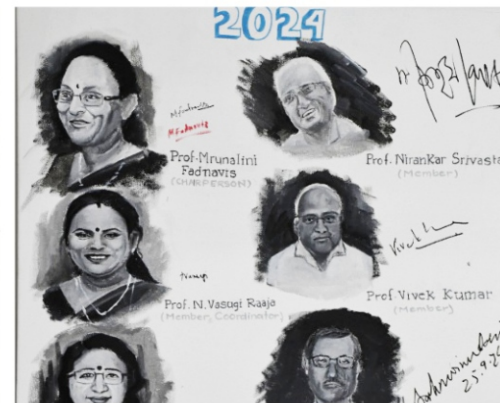 2024
Prof. Mrunalini
Fadnavis
(CHAIRPERSON)
Prof. Nirankar Srivasta
(Member)
Prof. N. Vasugi Raaja
(Member, Coordinator)
Prof. Vivek Kumar
(Member)
25.9.2